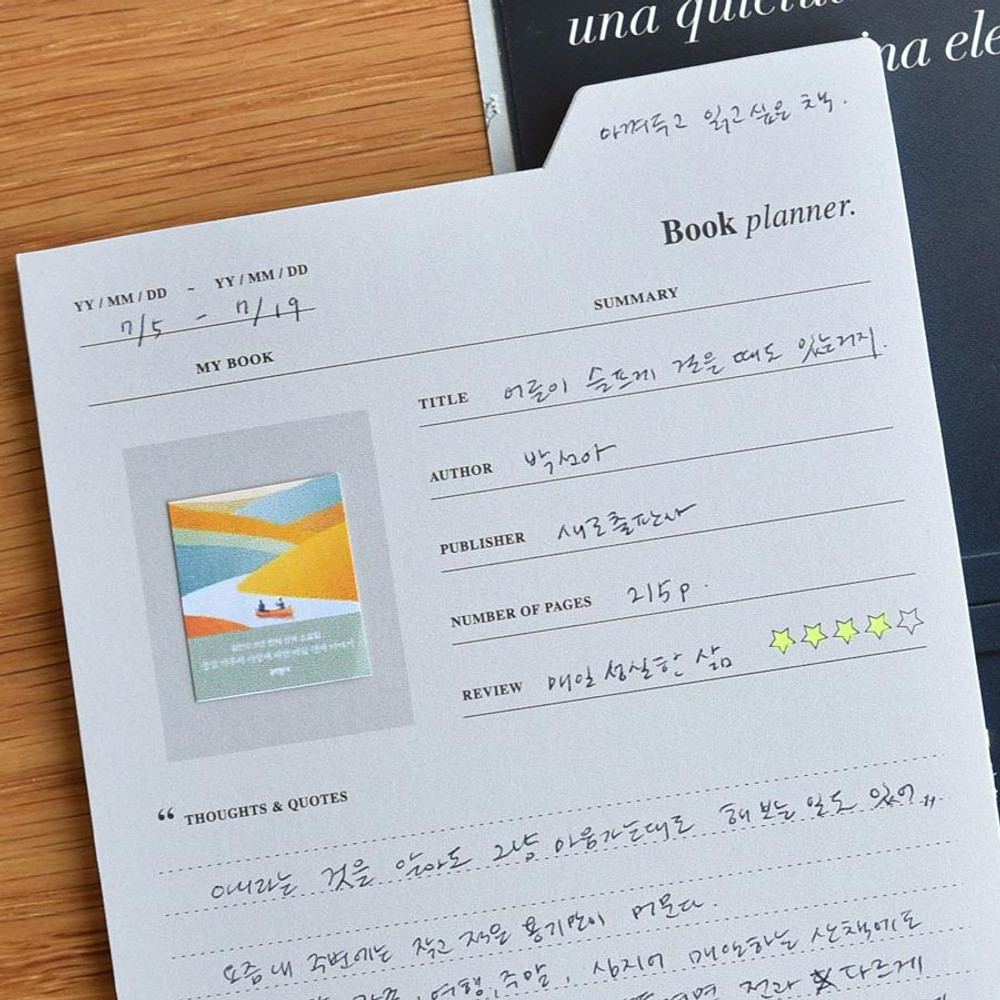 una
ina ele
아껴두고 읽고 싶은 책.
Book planner.
YY / MM / DD - YY / MM / DD
7/5 - 7/19
SUMMARY
MY BOOK
TITLE 어른이 슬프게 걸을 때도 있는거지.
AUTHOR 박선아
PUBLISHER 새로출판사
NUMBER OF PAGES 215p.
REVIEW 매일 성실한 삶
“ THOUGHTS & QUOTES
아니라는 것을 알아도 그냥 마음가는대로 해 보는 일도 있어.
요즘 내 주변에는 작고 적은 용기만이 머문다.
여행, 주말, 심지어 매일하는 산책에도
전과 다르게